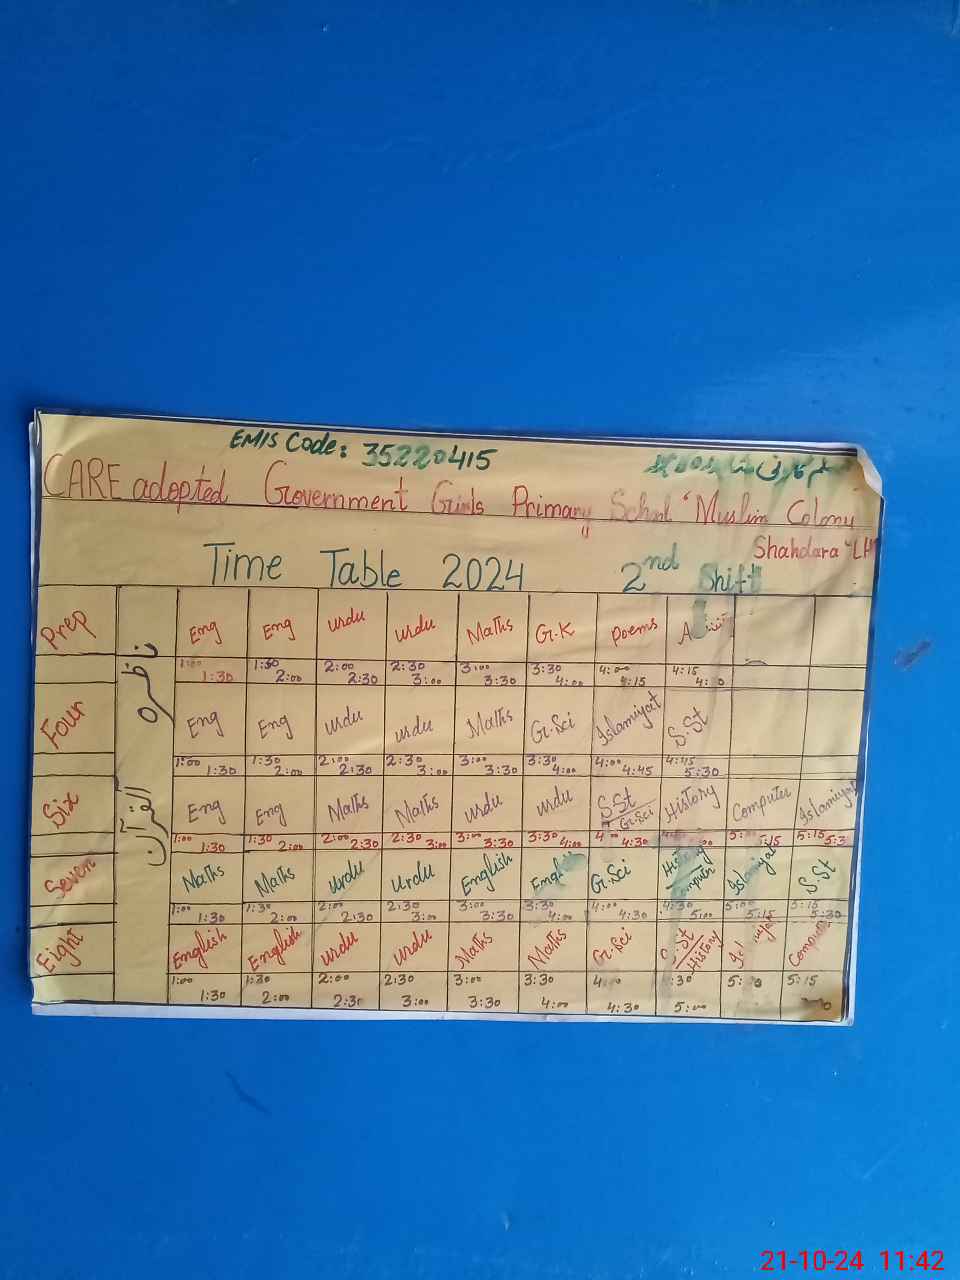 EMIS Code: 35220415
CARE adopted Government Girls Primary School "Muslim Colony"
Shahdara "LH
Time Table 2024 2nd Shift
ناظرہ القرآن
Prep Eng Eng urdu urdu Maths G.K Poems
1:00 1:30 1:30 2:00 2:00 2:30 2:30 3:00 3:00 3:30 3:30 4:00 4:00 4:15 4:15
Four Eng Eng urdu urdu Maths G.Sci Islamiyat S.St
1:00 1:30 1:30 2:00 2:00 2:30 2:30 3:00 3:00 3:30 3:30 4:00 4:00 4:45 4:45 5:30
Six Eng Eng Maths Maths urdu urdu S.St/G.Sci History Computer Islamiyat
1:00 1:30 1:30 2:00 2:00 2:30 2:30 3:00 3:00 3:30 3:30 4:00 4:30 5:15 5:15
Seven Maths Maths urdu urdu English English G.Sci History/Computer Islamiyat S.St
1:00 1:30 1:30 2:00 2:00 2:30 2:30 3:00 3:00 3:30 3:30 4:00 4:00 4:30 4:30 5:00 5:00 5:15 5:15 5:30
Eight English English urdu urdu Maths Maths G.Sci S.St/History Computer
1:00 1:30 1:30 2:00 2:00 2:30 2:30 3:00 3:00 3:30 3:30 4:00 4:30 5:00 5:15
21-10-24 11:42